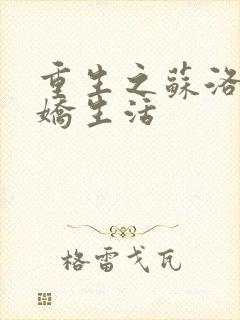 重生之蘇洛
嬌生活
格雷戈瓦